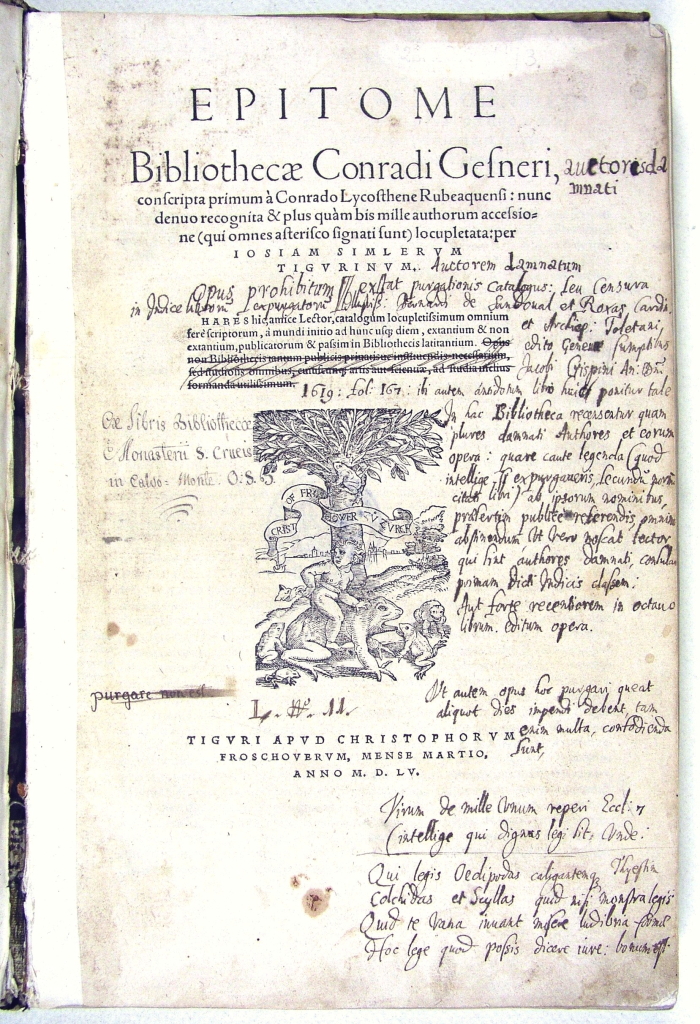 EPITOME
Bibliothecæ Conradi Gesneri, auctoris da
mnati
conscripta primum à Conrado Lycosthene Rubeaquensi: nunc
denuo recognita & plus quàm bis mille authorum accessio-
ne (qui omnes asterisco signati sunt) locupletata: per
IOSIAM SIMLERVM
TIGVRINVM. Auctorem damnatum
Opus prohibitum exstat purgationis Catalogus: seu Censura
in Indice librorum expurgatorum Bernardi de Sandoual et Roxas Cardin
HABES hic, amice Lector, catalogum locupletissimum omnium
ferè scriptorum, à mundi initio ad hunc usq; diem, extantium & non
extantium, publicatorum & passim in Bibliothecis latitantium. Opus
non Bibliothecis tantum publicis privatisue instituendis necessarium,
sed studiosis omnibus, cuiuscunq; artis aut scientiæ, ad studia melius
formanda utilissimum.
et Archiep: Toletani,
edito Geneuæ sumptibus
Jacobi Crispini An: Dom:
1619: fol: 167: ibi autem libro huic ponitur tale
Ex Libris Bibliothecæ
Monasterii S. Crucis
in Caluo-Monte. O.S.B.
In hac Bibliotheca recensentur quam
plures damnati Authores et eorum
opera: quare caute legenda (quod
intellige, si expurgaueris, secundum
libri) ab ipsorum nominibus
præsertim publice referendis omnino
abstinendum. Ut vero noscat lector
qui sint authores damnati, consulat
primam dicti Indicis classem:
Aut forte recentiorem in octauo
librum editum opera.
CRIST OF FRO HOVER ZV ZVRCH
purgare non est
Ut autem opus hoc purgari queat
aliquot dies impendi debent, tam
enim multa, confodienda
sunt,
L. W. 11.
TIGVRI APVD CHRISTOPHORVM
FROSCHOVERVM, MENSE MARTIO,
ANNO M. D. LV.
Virum de mille Unum reperi Eccl: 7
(intellige qui dignus legi sit. Unde:
Qui legis Oedipodas caligantemq Thyesten
Colchidas et Scyllas quid nisi monstra legis
Quid te vana iuuant miseræ ludibria
Hoc lege quod possis dicere iure: bonum est